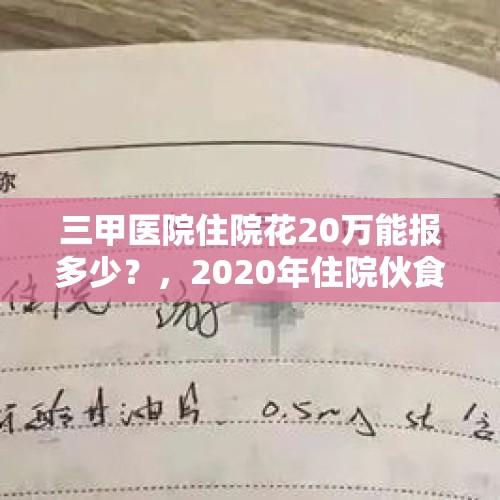 称
三甲医院住院花20万能报
多少？，2020年住院伙食
住院 游
硝酸甘油片 0.5mg st 含